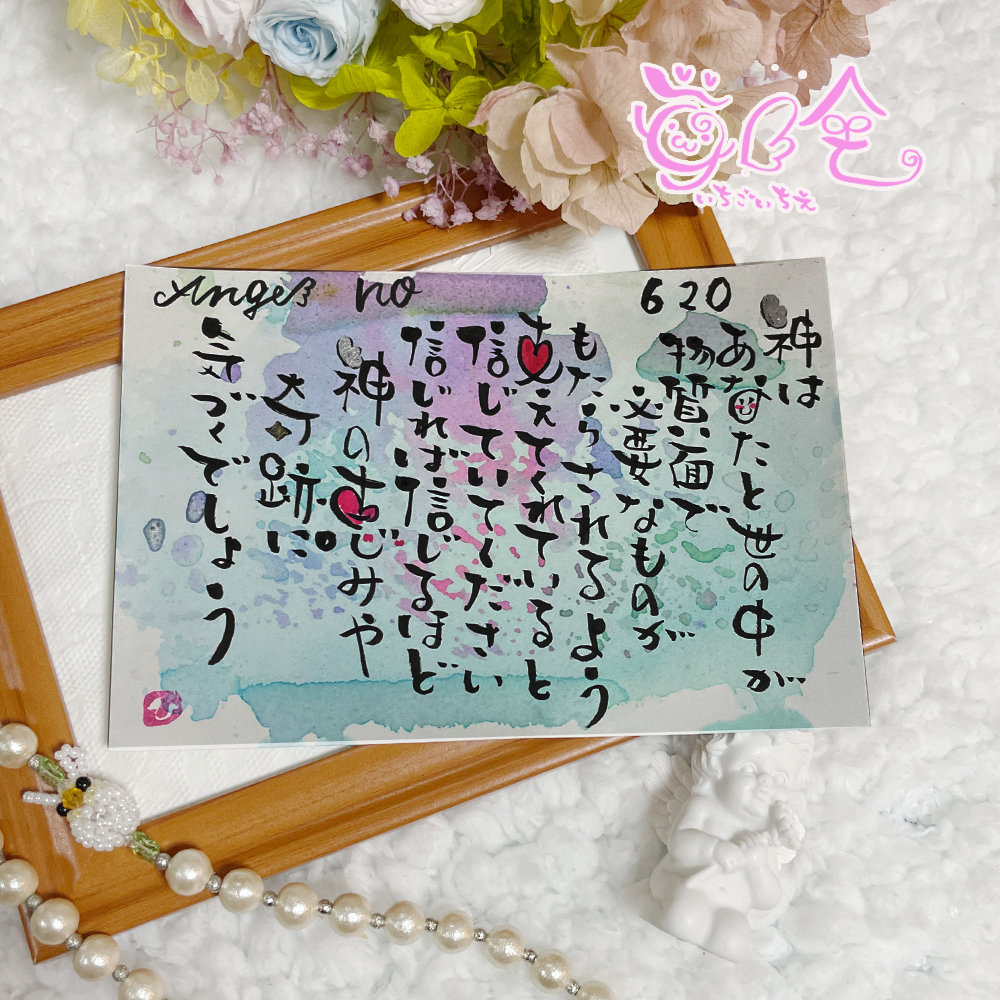 いちごいちえ
Angel no 620
神は
あなたと世の中が
物質面で
必要なものが
もたらされるよう
支えてくれていると
信じていてください
信じれば信じるほど
神の志じみや
奇跡に
気づくでしょう